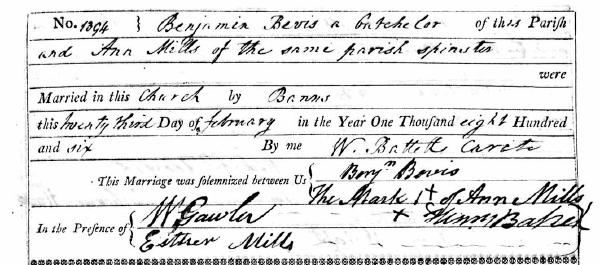 No. 1394 } Benjamin Bevis a batchelor of this Parish
and Ann Mills of the same parish spinster
were
Married in this Church by Banns
this twenty third Day of february in the Year One Thousand eight Hundred
and six By me W. Curate
This Marriage was solemnized between Us { Benjn Bevis
The Mark + of Ann Mills
In the Presence of { W Gawler + Henry Baker
Esther Mills